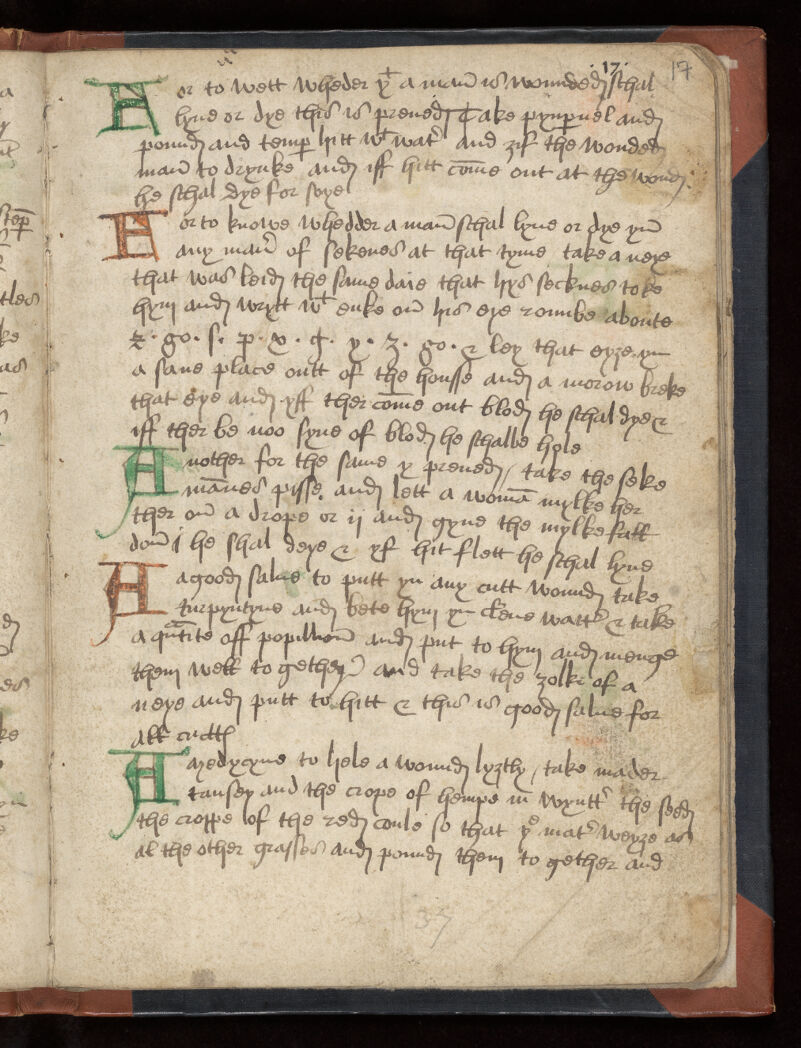 .17. 17
For to wett wheder yt a man is wounded schal
lyue or dye this is preued Take pympernel and
pound and temper hitt wt water and ȝif the wonded
man to drynke and iff hitt come out at the wound
he schal dye for soye
For to knowe whedder a man schal lyue or dye yn
any maner of sekenes at that tyme take a neye
that was leid the same daie that hys secknes toke
hym and wrytt wt enke on his eye rounbe aboute
go . s . p . x . g . y . ȝ . go . & ley that eyȝe yn
a saue place outt of the housse and a morow breke
that eye and yff ther come out blod he schal dye &
iff ther be noo syne of blod he schalbe hole
Another for the same y preued / take the seke
mannes pisse and lett a woman mylke her
ther on a drope or ij and gyue the mylke fall
doun he shal deye & yf hit flett he schal lyue
A good salue to putt yn any cutt wound take
turpyntyne and bete hym yn clene watter & take
a quantite off popillion and put to hym and menge
them well to gether and take the ȝolke of a
neye and putt to hitt & this is good salue for
all cuttes
A medycyne to hele a wound lyȝtly / take mader
tansey and the crope of hempe in wyntter the seed
the croppe of the red coule so that ye mater weyȝe as
al the other grasses and pound them to gether and
37